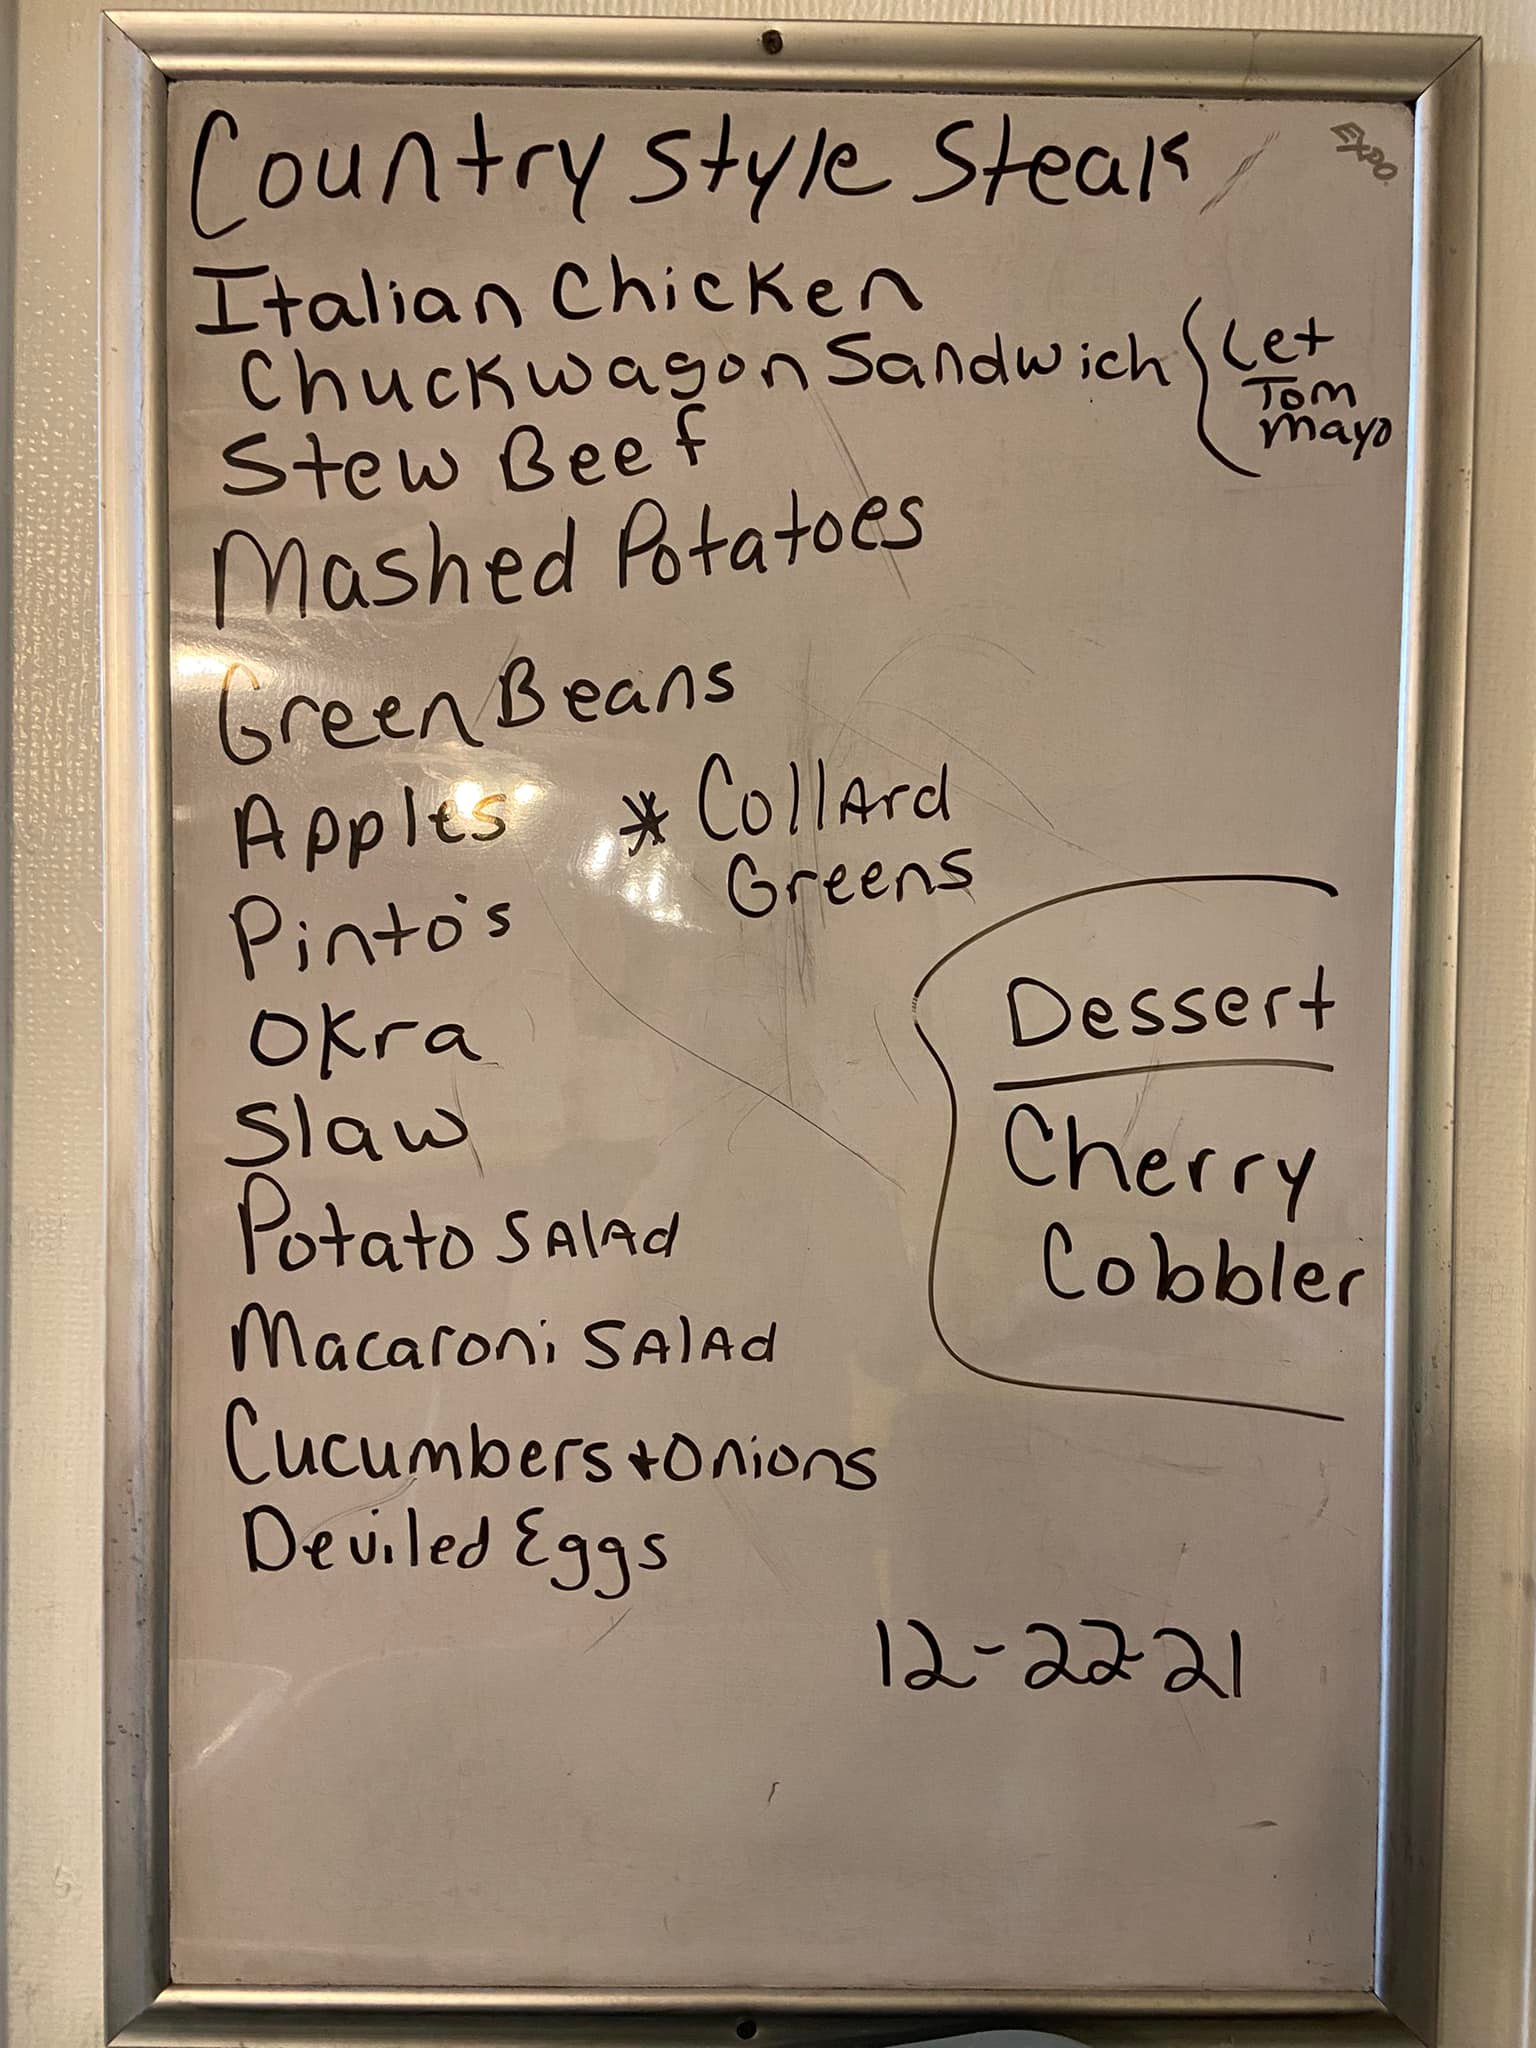 Country Style Steak
EXPO
Italian Chicken
Chuckwagon Sandwich
Let
Tom
Mayo
Stew Beef
Mashed Potatoes
Green Beans
Apples
* Collard
Greens
Pinto's
Okra
Slaw
Potato Salad
Macaroni Salad
Cucumbers + Onions
Deviled Eggs
Dessert
Cherry
Cobbler
12-22-21